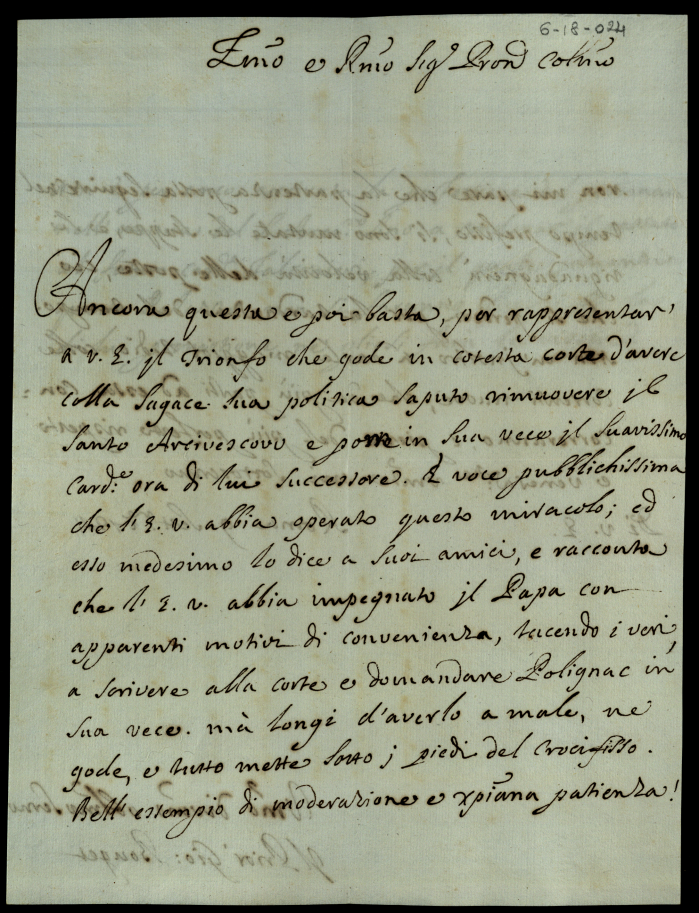 6-18-024
Emo e Rmo Sigr Pron Colmo
Ancora questa e poi basta, per rappresentar'
a v. E. jl Trionfo che gode in cotesta corte d'avere
colla sagace sua politica saputo rimuovere jl
santo Arcivescovo e porre in sua vece jl suavissimo
Card:e ora di lui successore. È voce pubblichissima
che l'E. v. abbia operato questo miracolo; ed
esso medesimo lo dice a suoi amici, e racconta
che l'E. v. abbia impegnato jl Papa con
apparenti motivi di convenienza, tacendo i veri,
a scrivere alla corte e domandare Polignac in
sua vece. mà longi d'averlo a male, ne
gode, e tutto mette sotto j piedi del Crocifisso.
Bell' essempio di moderazione e xpiana patienza!